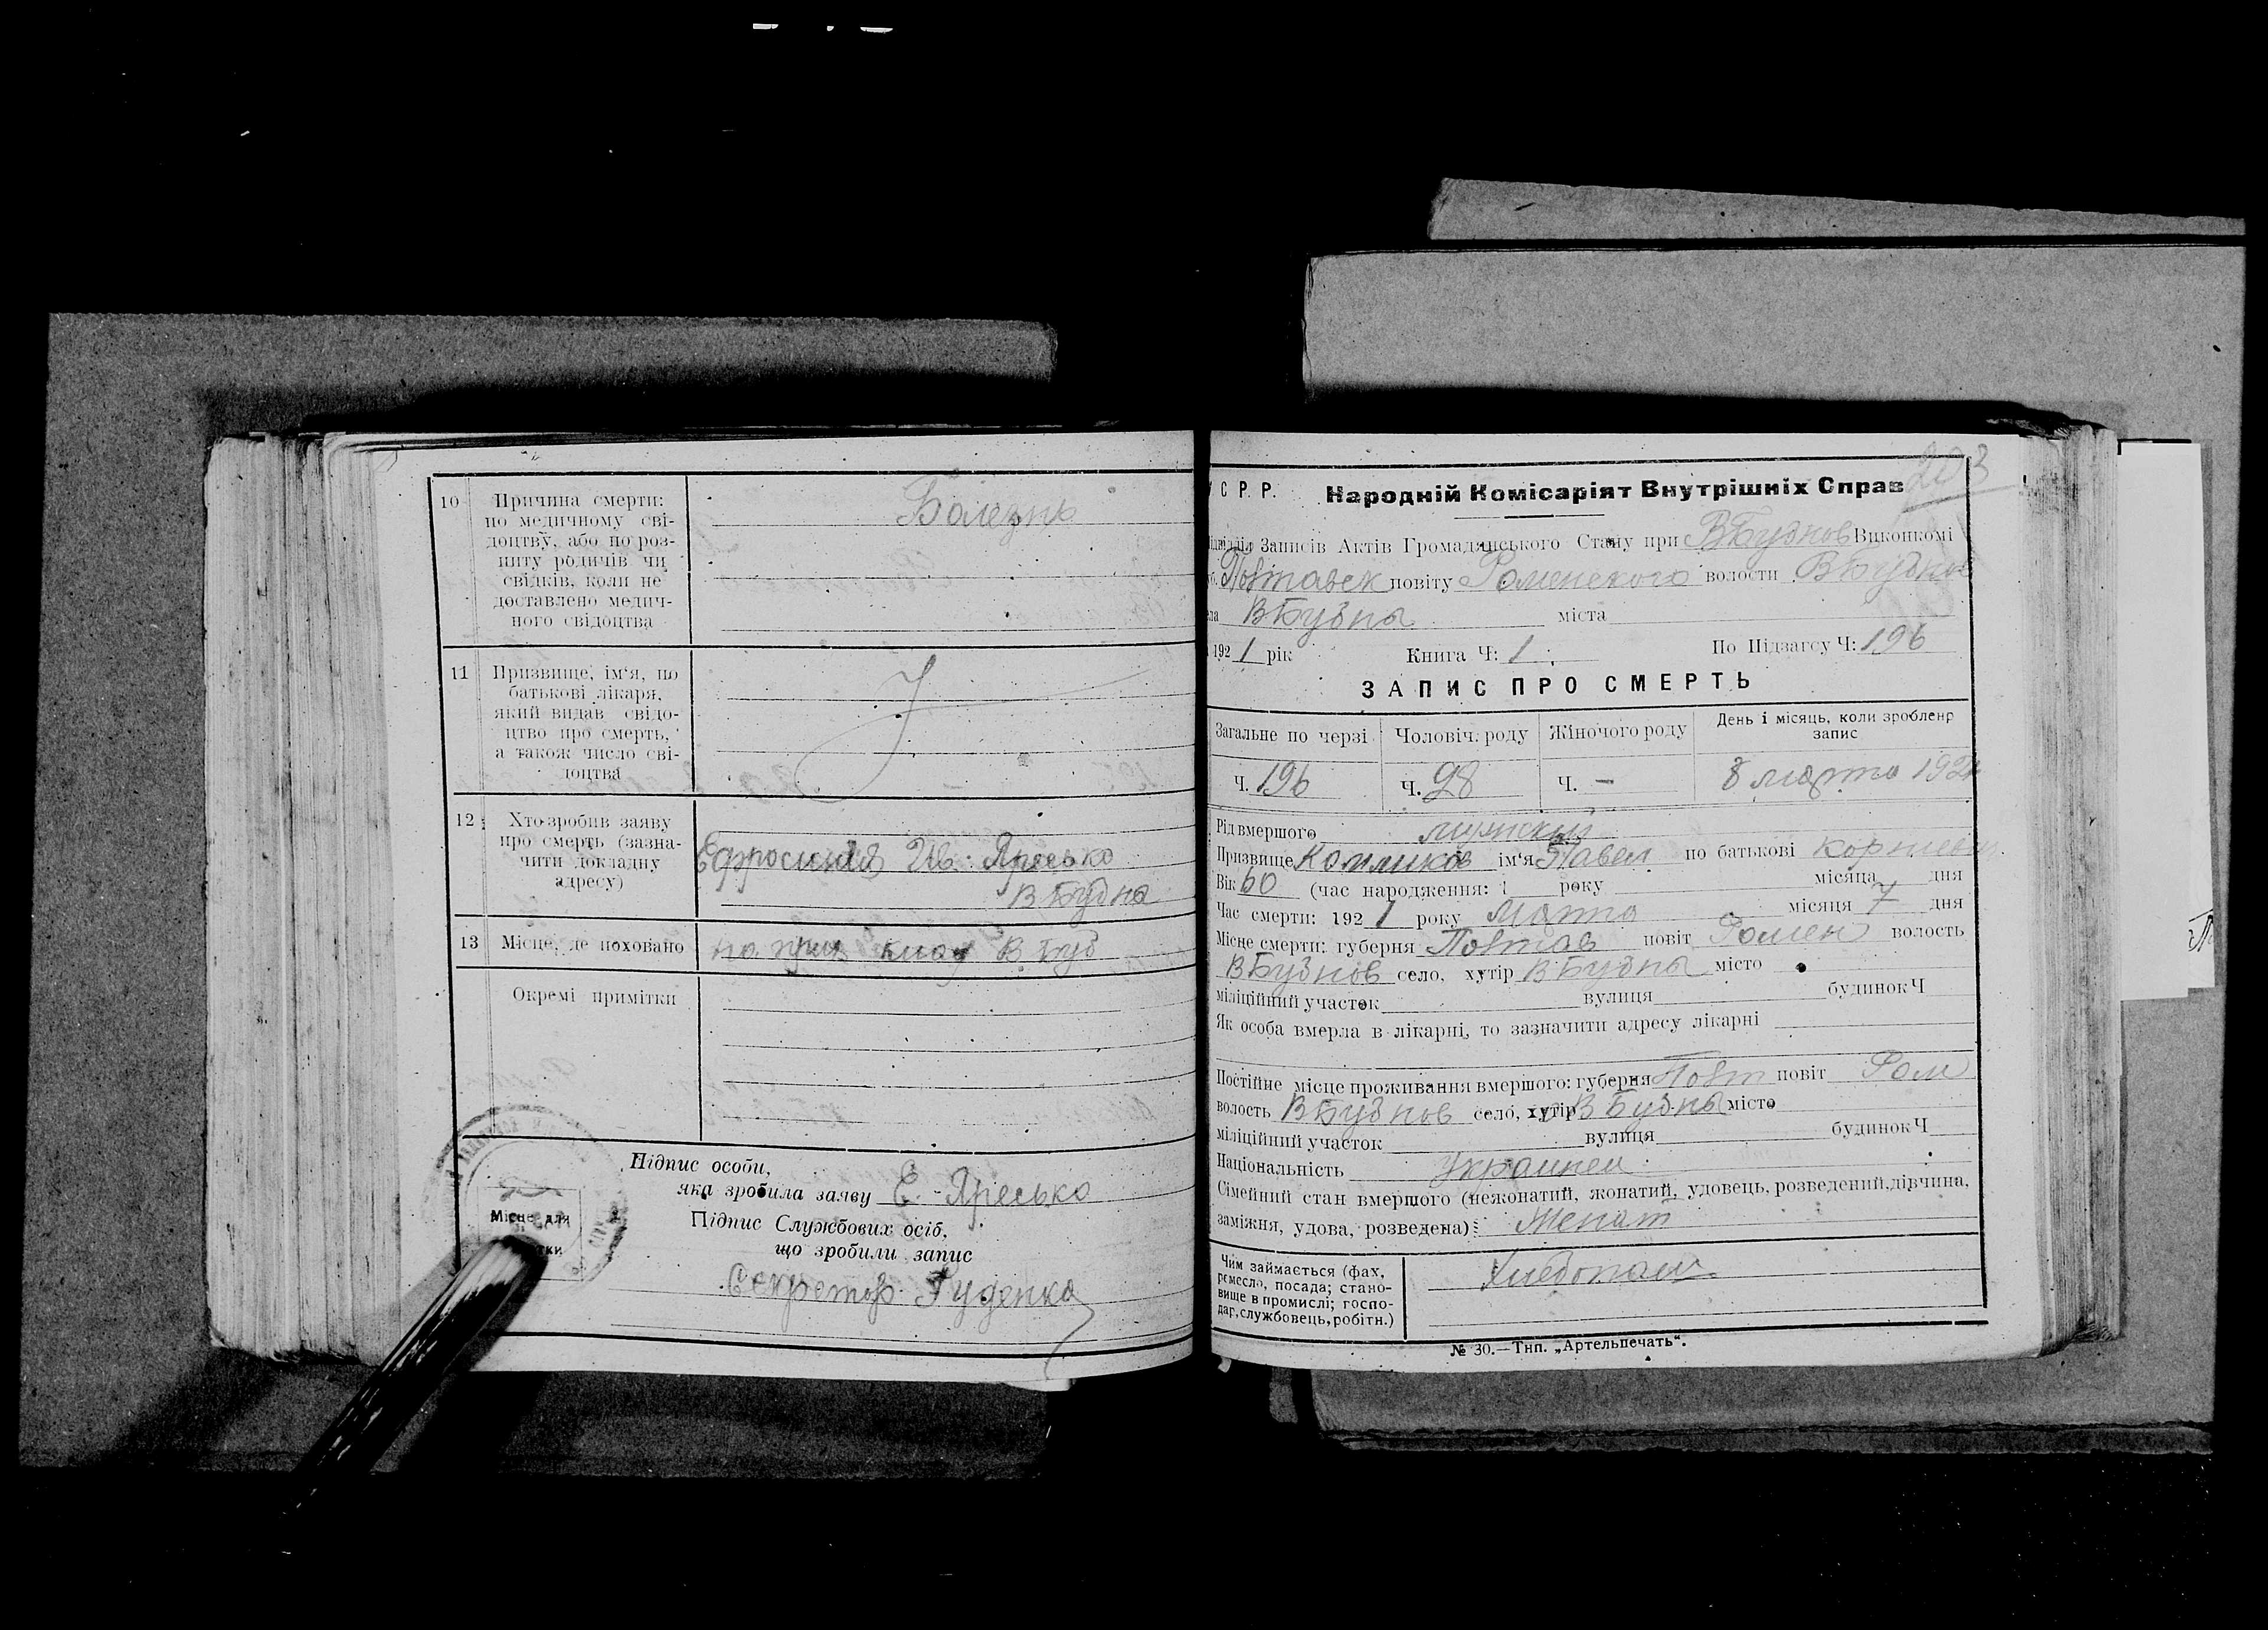 10 Причина смерти:
по медичному сві-
доцтву, або по роз-
питу родичів чи
свідків, коли не
доставлено медич-
ного свідоцтва
Болезнь
11 Призвище, ім'я, по
батькові лікаря,
який видав свідо-
цтво про смерть,
а також число сві-
доцтва
12 Хто зробив заяву
про смерть (зазна-
чити докладну
адресу)
Ефросиния Ив. Яресько
В Будна
13 Місце, де поховано на В Буд
Окремі примітки
Підпис особи,
яка зробила заяву Е. Яресько
Підпис Службових осіб,
що зробили запис
Місце для
тки
Секретар Руденко
203
У С Р. Р. Народній Комісаріят Внутрішніх Справ
Записів Актів Громадянського Стану при ВБуднов Виконкомі
Полтавск повіту Роменского волости ВБуднов
ВБудны міста
192 1 рік Книга Ч: 1 По Підзагсу Ч: 196
ЗАПИС ПРО СМЕРТЬ
Загальне по черзі Чоловіч. роду Жіночого роду День і місяць, коли зроблено
запис
Ч. 196 Ч. 98 Ч. — 8 марта 1921
Рід вмершого мужский
Призвище ім'я Павел по батькові Корниев
Вік 60 (час народження: року місяца дня
Час смерти: 192 1 року Марта місяця 7 дня
Місце смерти: губерня Полтав повіт Ромен волость
ВБуднов село, хутір ВБудны місто
міліційний участок вулиця будинок Ч
Як особа вмерла в лікарні, то зазначити адресу лікарні
Постійне місце проживання вмершого: губерня Полт повіт Ром
волость ВБуднов село, хутір ВБудны місто
міліційний участок вулиця будинок Ч
Національність Украинец
Сімейний стан вмершого (нежонатий, жонатий, удовець, розведений, дівчина,
заміжня, удова, розведена): Женат
Чим займається (фах,
ремесло, посада; стано-
вище в промислі; госпо-
дар, службовець, робітн.)
Хлебопаш
№ 30.—Тип. „Артельпечать“.